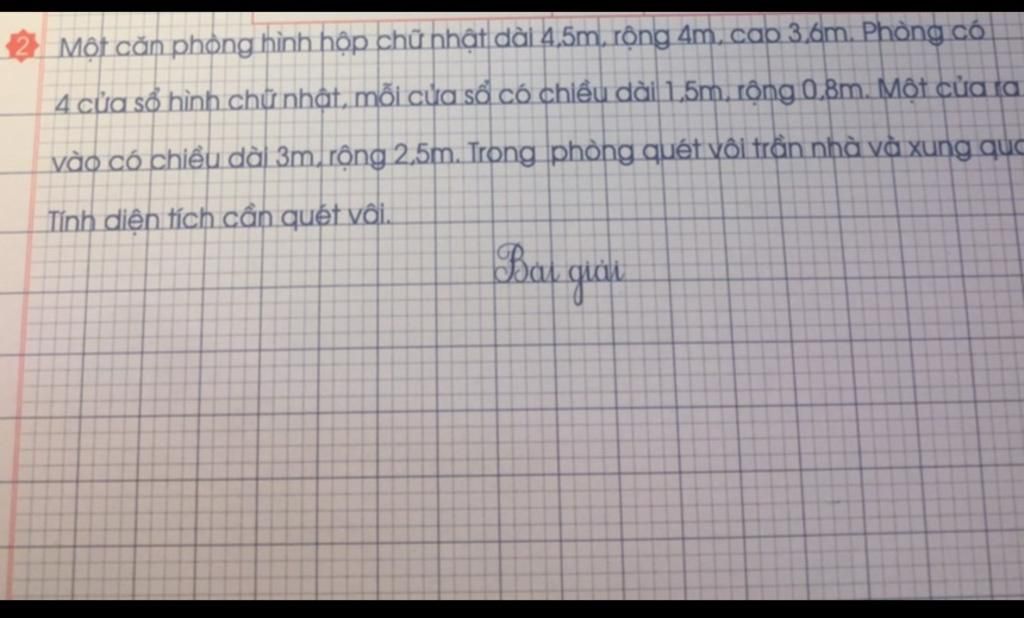 2 Một căn phòng hình hộp chữ nhật dài 4,5m, rộng 4m, cao 3,6m. Phòng có
4 cửa sổ hình chữ nhật, mỗi cửa sổ có chiều dài 1,5m, rộng 0,8m. Một cửa ra
vào có chiều dài 3m, rộng 2,5m. Trong phòng quét vôi trần nhà và xung
Tính diện tích cần quét vôi.
Bài giải